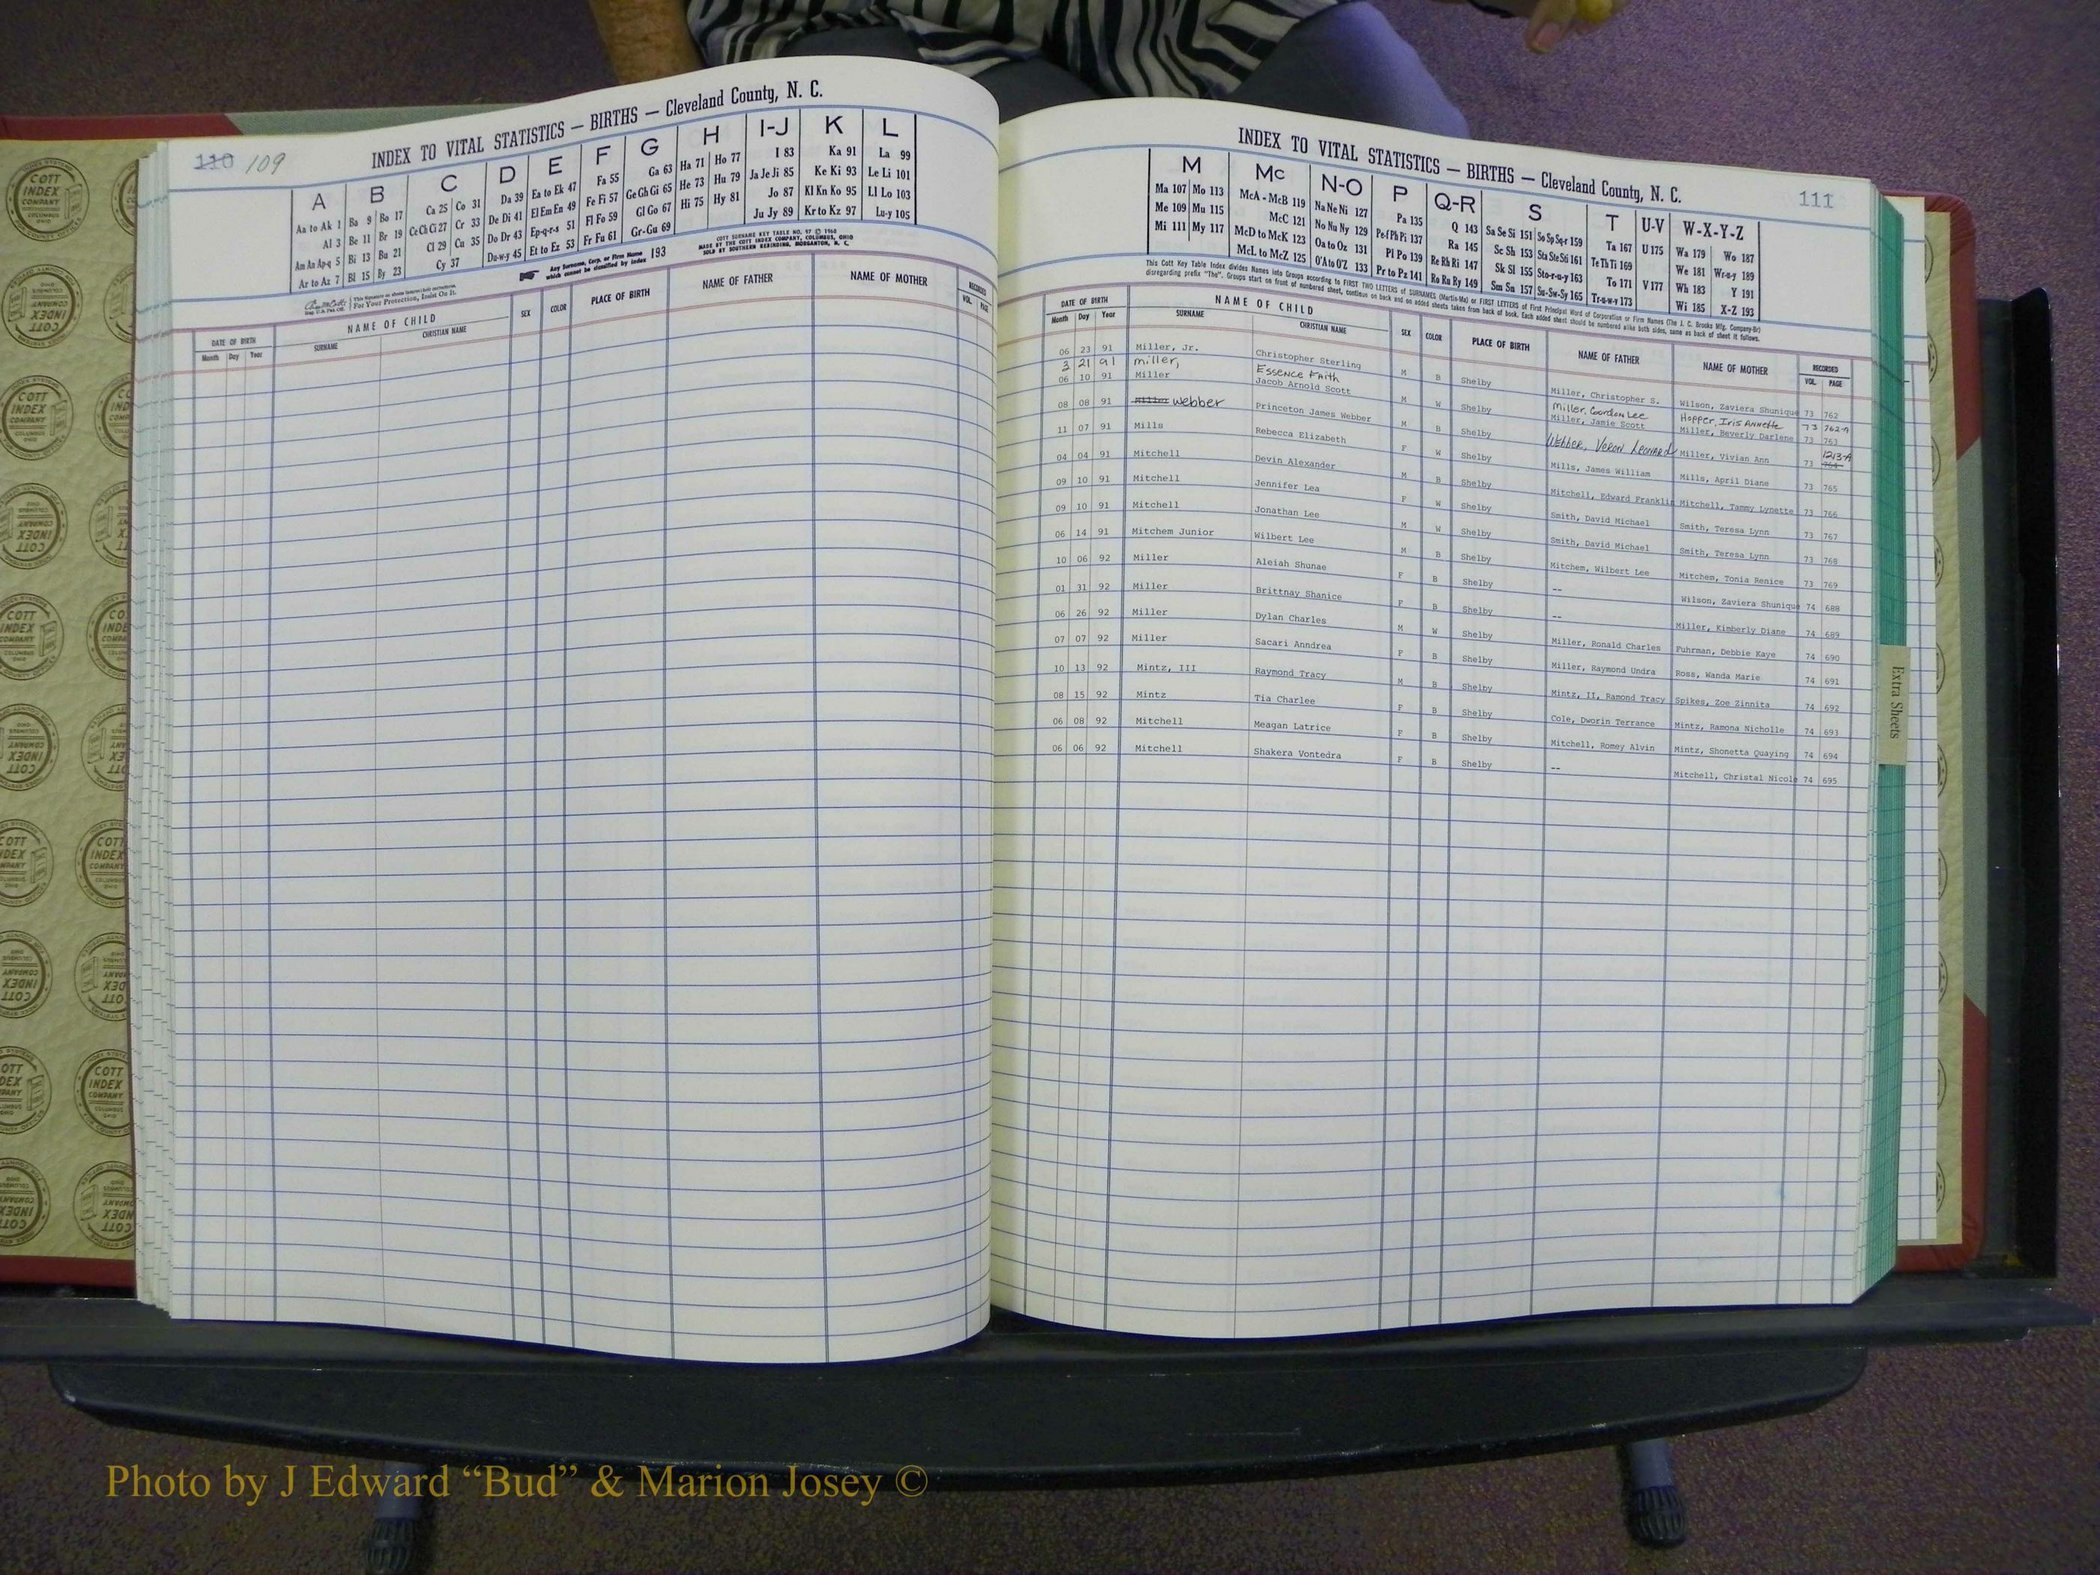 110 109
INDEX TO VITAL STATISTICS — BIRTHS — Cleveland County, N. C.
A B C D E F G H I-J K L
Aa to Ak 1 Ba 9 Bo 17 Ca 25 Co 31 Da 39 Ea to Ek 47 Fa 55 Ga 63 Ha 71 Ho 77 I 83 Ka 91 La 99
Al 3 Be 11 Br 19 Ce Ch Ci 27 Cr 33 De Di 41 El Em En 49 Fe Fi 57 Ge Gh Gi 65 He 73 Hu 79 Ja Je Ji 85 Ke Ki 93 Le Li 101
Am An Ap-q 5 Bi 13 Bu 21 Cl 29 Cu 35 Do Dr 43 Ep-q-r-s 51 Fl Fo 59 Gl Go 67 Hi 75 Hy 81 Jo 87 Kl Kn Ko 95 Ll Lo 103
Ar to Az 7 Bl 15 By 23 Cy 37 Du-w-y 45 Et to Ez 53 Fr Fu 61 Gr-Gu 69 Ju Jy 89 Kr to Kz 97 Lu-y 105
Any Surname, Corp. or Firm Name which cannot be classified by index 193
COTT SURNAME KEY TABLE NO. 97 © 1968
MADE BY THE COTT INDEX COMPANY, COLUMBUS, OHIO
SOLD BY SOUTHERN REBINDING, MORGANTON, N. C.
For Your Protection, Insist On It.
DATE OF BIRTH NAME OF CHILD SEX COLOR PLACE OF BIRTH NAME OF FATHER NAME OF MOTHER RECORDED
Month Day Year SURNAME CHRISTIAN NAME VOL. PAGE
INDEX TO VITAL STATISTICS — BIRTHS — Cleveland County, N. C.
111
M Mc N-O P Q-R S T U-V W-X-Y-Z
Ma 107 Mo 113 McA - McB 119 Na Ne Ni 127 Pa 135 Q 143 Sa Se Si 151 So Sp Sq-r 159 Ta 167 U 175 Wa 179 Wo 187
Me 109 Mu 115 McC 121 No Nu Ny 129 Pe-f Ph Pi 137 Ra 145 Sc Sh 153 Sta Ste Sti 161 Te Th Ti 169 We 181 Wr-u-y 189
Mi 111 My 117 McD to McK 123 Oa to Oz 131 Pl Po 139 Re Rh Ri 147 Sk Sl 155 Sto-r-u-y 163 To 171 V 177 Wh 183 Y 191
McL to McZ 125 O'A to O'Z 133 Pr to Pz 141 Ro Ru Ry 149 Sm Sn 157 Su-Sw-Sy 165 Tr-u-w-y 173 Wi 185 X-Z 193
This Cott Key Table Index divides Names into Groups according to FIRST TWO LETTERS of SURNAMES (Martin-Ma) or FIRST LETTERS of First Principal Word of Corporation or Firm Names (The J. C. Brooks Mfg. Company-Br)
disregarding prefix "The". Groups start on front of numbered sheet, continue on back and on added sheets taken from back of book. Each added sheet should be numbered alike both sides, same as back of sheet it follows.
DATE OF BIRTH NAME OF CHILD SEX COLOR PLACE OF BIRTH NAME OF FATHER NAME OF MOTHER RECORDED
Month Day Year SURNAME CHRISTIAN NAME VOL. PAGE
06 23 91 Miller, Jr. Christopher Sterling M B Shelby Miller, Christopher S. Wilson, Zaviera Shunique 73 762
3 21 91 Miller, Essence Faith Miller, Gordon Lee Hopper, Iris Annette 73 762-A
06 10 91 Miller Jacob Arnold Scott M W Shelby Miller, Jamie Scott Miller, Beverly Darlene 73 763
08 08 91 Miller Webber Princeton James Webber M B Shelby Webber, Veron Leonard Miller, Vivian Ann 73 1213-A 764
11 07 91 Mills Rebecca Elizabeth F W Shelby Mills, James William Mills, April Diane 73 765
04 04 91 Mitchell Devin Alexander M B Shelby Mitchell, Edward Franklin Mitchell, Tammy Lynette 73 766
09 10 91 Mitchell Jennifer Lea F W Shelby Smith, David Michael Smith, Teresa Lynn 73 767
09 10 91 Mitchell Jonathan Lee M W Shelby Smith, David Michael Smith, Teresa Lynn 73 768
06 14 91 Mitchem Junior Wilbert Lee M B Shelby Mitchem, Wilbert Lee Mitchem, Tonia Renice 73 769
10 06 92 Miller Aleiah Shunae F B Shelby -- Wilson, Zaviera Shunique 74 688
01 31 92 Miller Brittnay Shanice F B Shelby -- Miller, Kimberly Diane 74 689
06 26 92 Miller Dylan Charles M W Shelby Miller, Ronald Charles Fuhrman, Debbie Kaye 74 690
07 07 92 Miller Sacari Anndrea F B Shelby Miller, Raymond Undra Ross, Wanda Marie 74 691
10 13 92 Mintz, III Raymond Tracy M B Shelby Mintz, II, Ramond Tracy Spikes, Zoe Zinnita 74 692
08 15 92 Mintz Tia Charlee F B Shelby Cole, Dworin Terrance Mintz, Ramona Nicholle 74 693
06 08 92 Mitchell Meagan Latrice F B Shelby Mitchell, Romey Alvin Mintz, Shonetta Quaying 74 694
06 06 92 Mitchell Shakera Vontedra F B Shelby -- Mitchell, Christal Nicole 74 695
Extra Sheets
COTT INDEX COMPANY COLUMBUS OHIO
Photo by J Edward “Bud” & Marion Josey ©